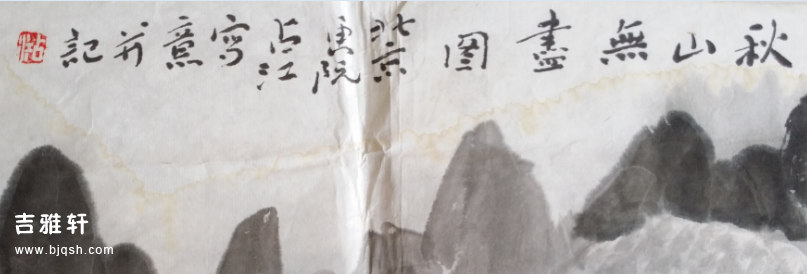 秋山無盡图
北京
画院
占江
寫意并記
吉雅轩
www.bjqsh.com